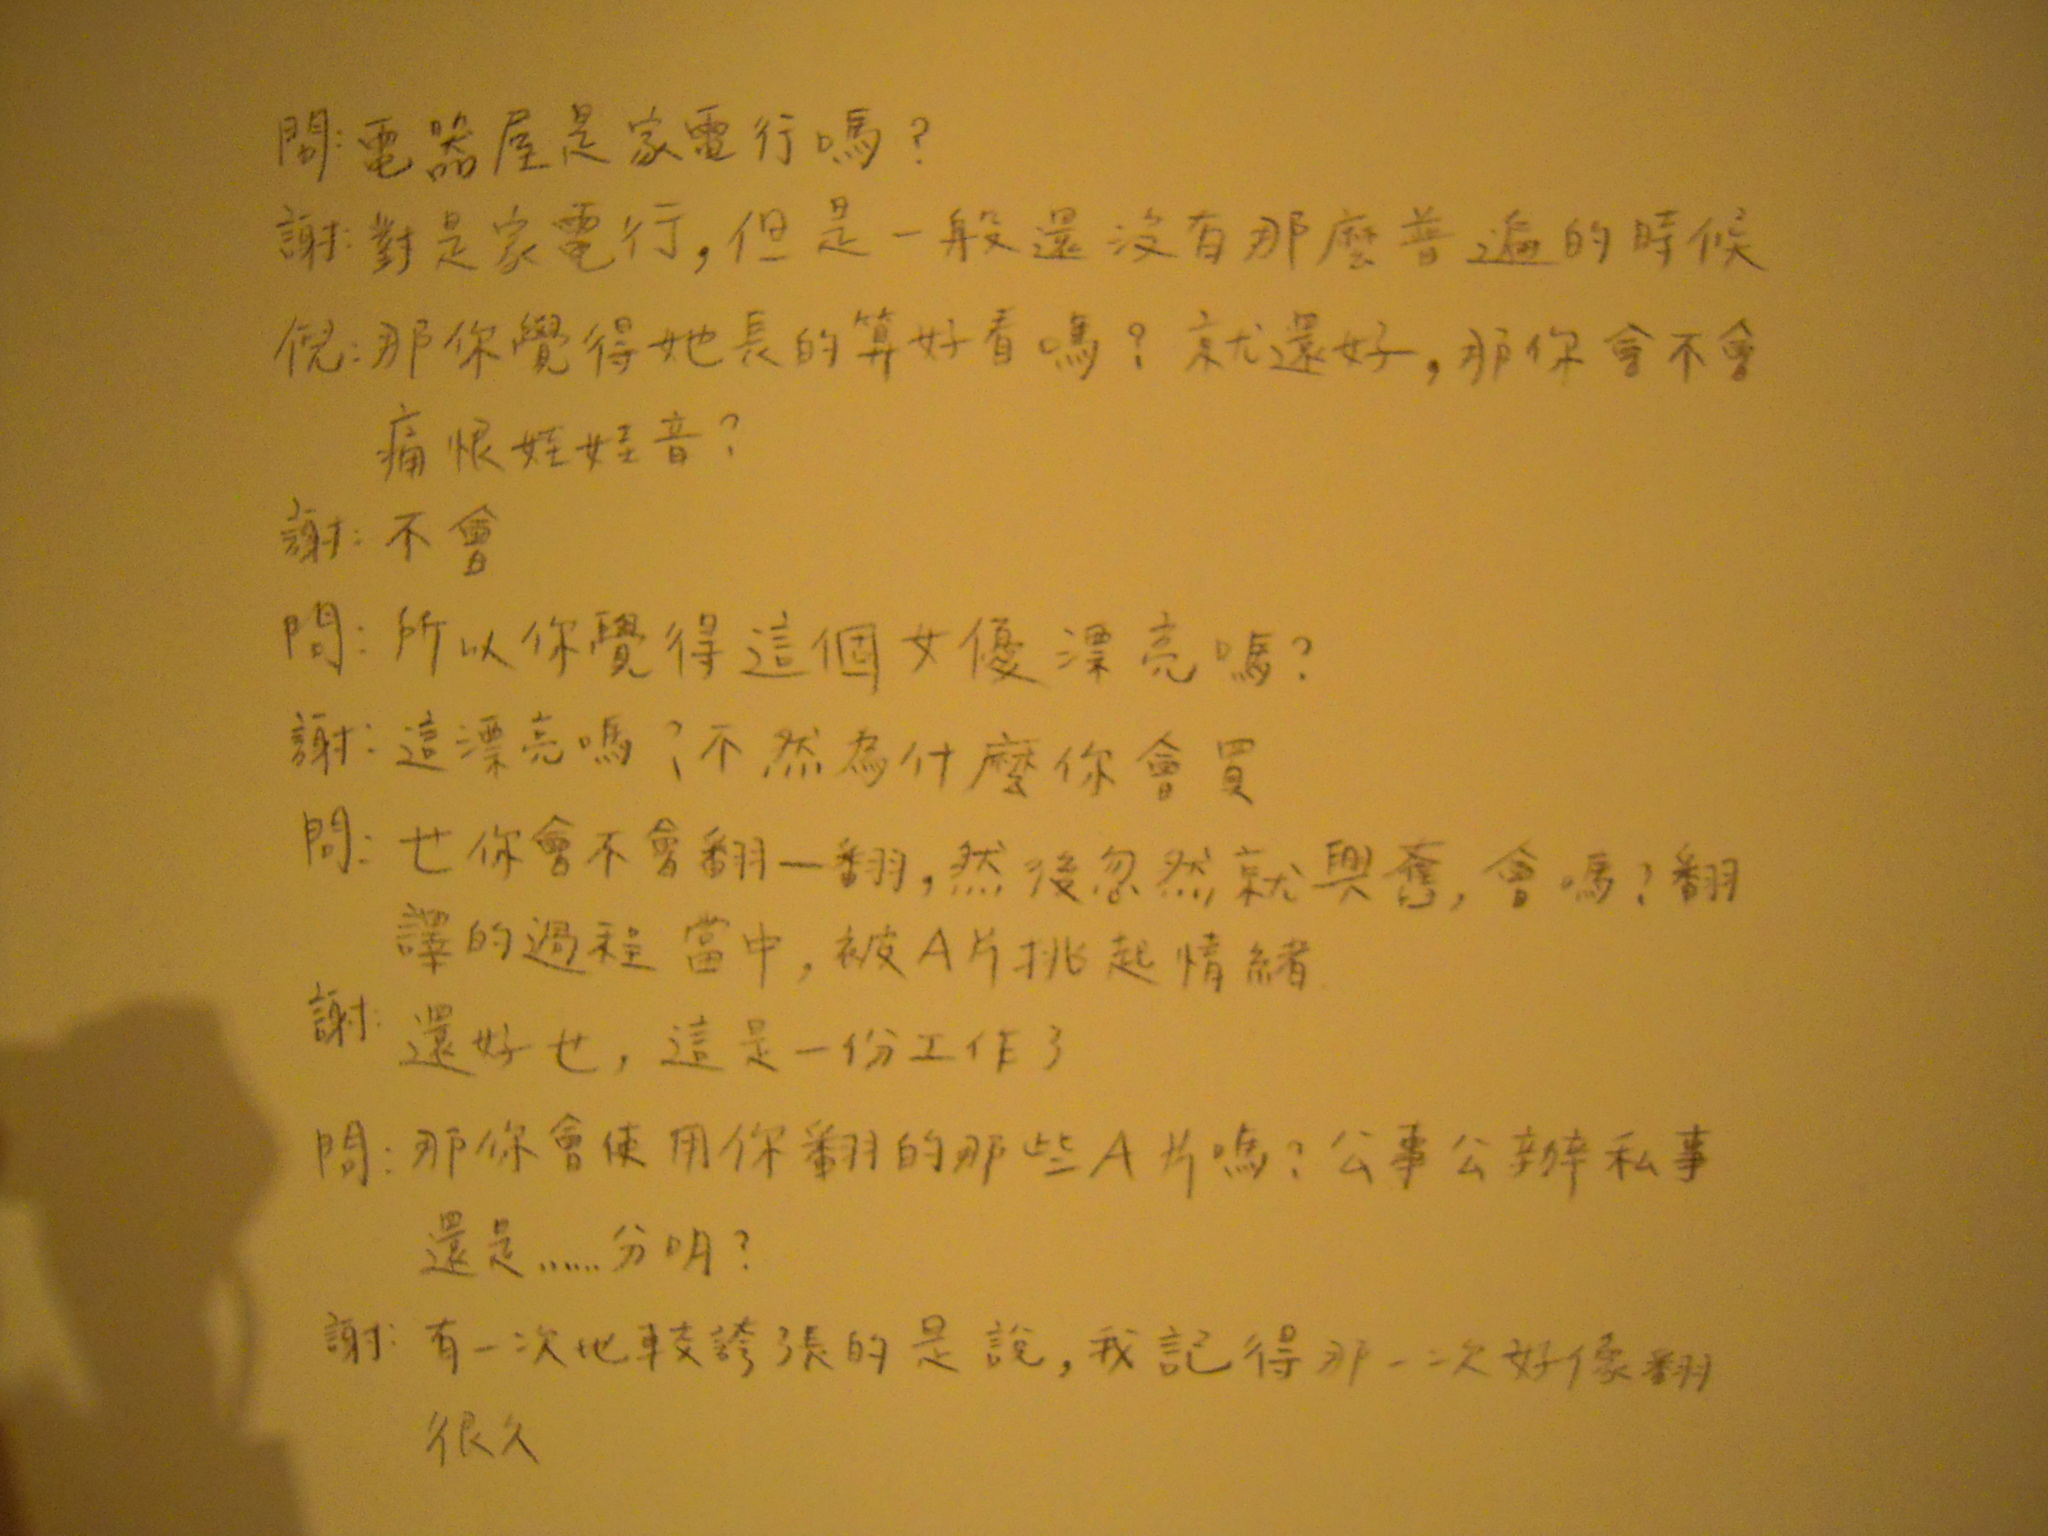 問:電器屋是家電行嗎?
謝:對是家電行,但是一般還沒有那麼普遍的時候
倪:那你覺得她長的算好看嗎?就還好,那你會不會
痛恨娃娃音?
謝:不會
問:所以你覺得這個女優漂亮嗎?
謝:這漂亮嗎?不然為什麼你會買
問:ㄝ你會不會翻一翻,然後忽然就興奮,會嗎?翻
譯的過程當中,被A片挑起情緒
謝:還好ㄝ,這是一份工作了
問:那你會使用你翻的那些A片嗎?公事公辦私事
還是......分明?
謝:有一次他較誇張的是說,我記得那一次好像翻
很久